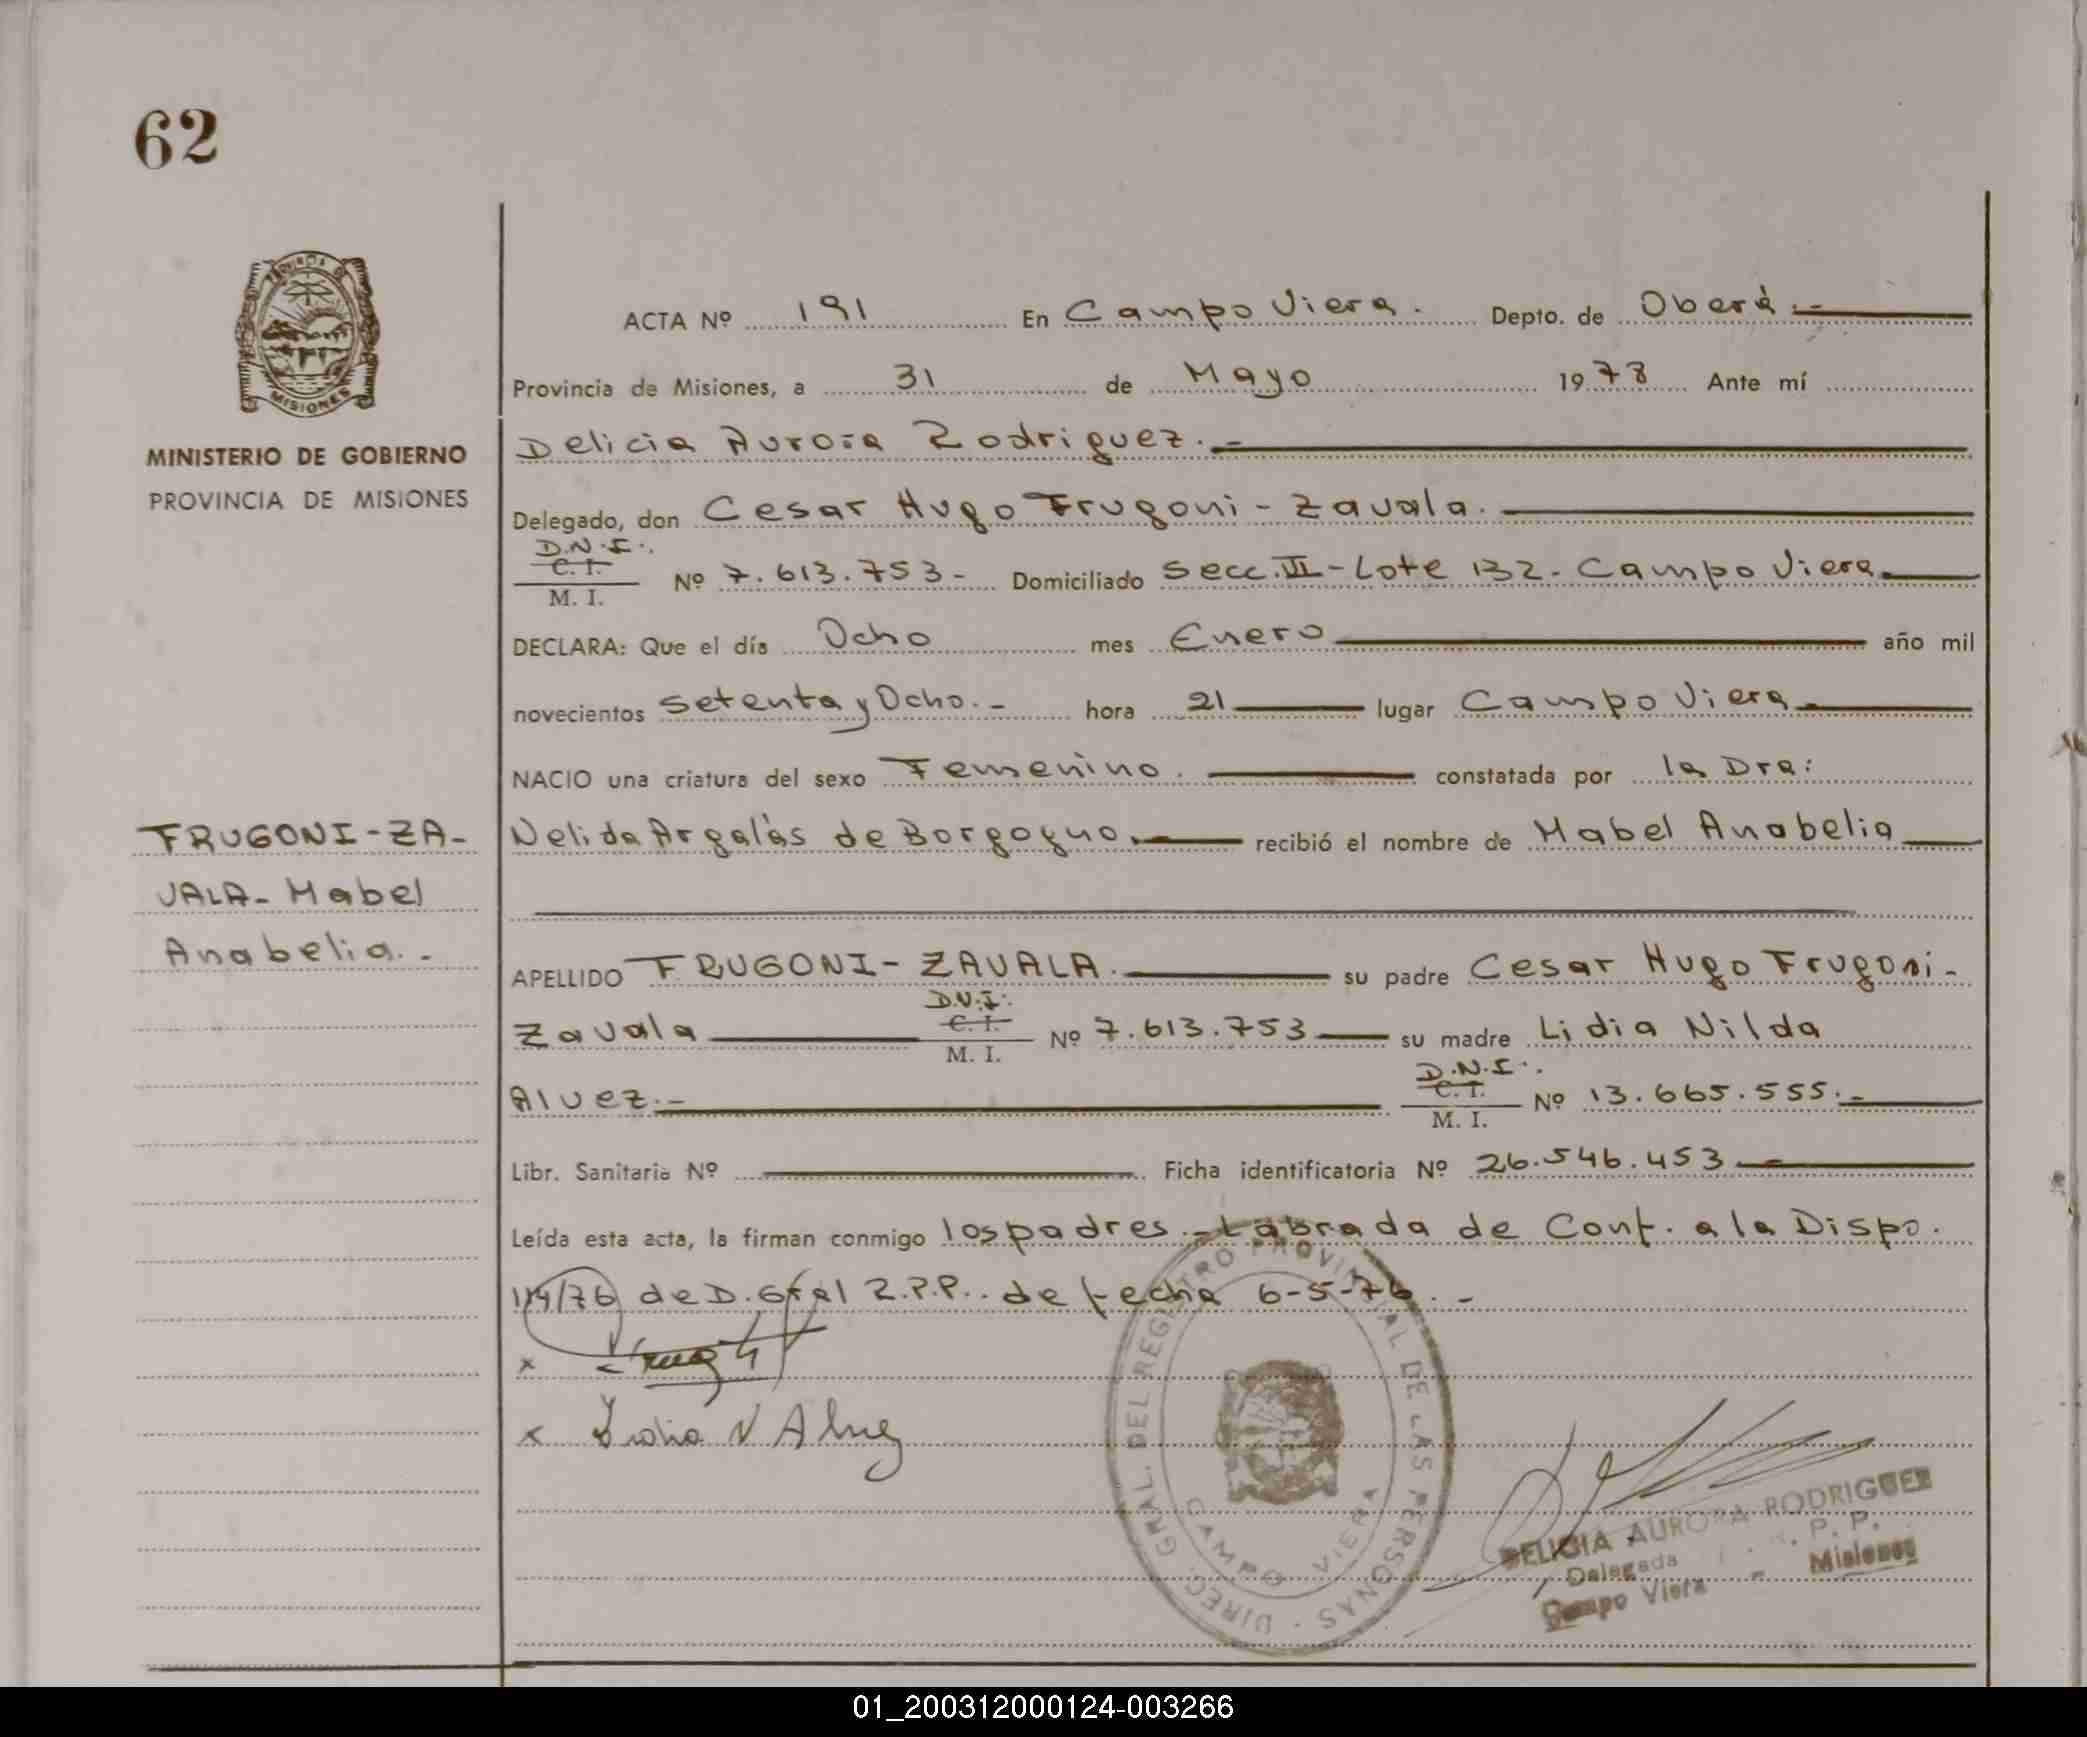 62
PROVINCIA DE
MISIONES
MINISTERIO DE GOBIERNO
PROVINCIA DE MISIONES
FRUGONI-ZA-
VALA- Mabel
Anabelia.-
ACTA Nº 191 En Campo Viera. Depto. de Oberá.-
Provincia de Misiones, a 31 de Mayo 1978 Ante mí
Delicia Aurora Rodriguez.-
Delegado, don Cesar Hugo Frugoni - Zavala.
D.N.I.
C. I.
M. I. Nº 7.613.753- Domiciliado Secc. II - Lote 132- Campo Viera
DECLARA: Que el día Ocho mes Enero año mil
novecientos setenta y Ocho.- hora 21 lugar Campo Viera
NACIO una criatura del sexo Femenino. constatada por la Dra:
Nelida Argalás de Borgogno. recibió el nombre de Mabel Anabelia
APELLIDO FRUGONI - ZAVALA. su padre Cesar Hugo Frugoni-
D.N.I.
C. I.
Zavala M. I. Nº 7.613.753 su madre Lidia Nilda
D.N.I.
C. I.
Alvez.- M. I. Nº 13.665.555.-
Libr. Sanitaria Nº Ficha identificatoria Nº 26.546.453
Leída esta acta, la firman conmigo los padres.-Labrada de Conf. a la Dispo.
114/76 de D. Gral R.P.P. de fecha 6-5-76.-
x
x Lidia N Alvez
DIREC. GRAL. DEL REGISTRO PROVINCIAL DE LAS PERSONAS
CAMPO VIERA
DELICIA AURORA RODRIGUEZ
Delegada R. P. P.
Campo Viera - Misiones
01_200312000124-003266